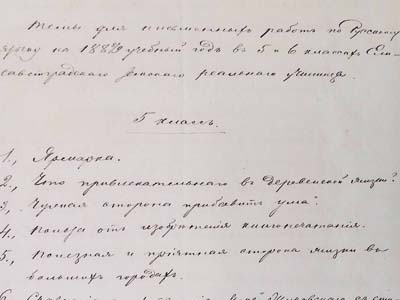 Темы для письменныхъ работъ по Русскому
языку на 1882 учебный годъ въ 5 и 6 классахъ Ели-
саветградскаго Земскаго реальнаго училища.
5 классъ.
1., Ярмарка.
2., Что привлекательнаго въ деревенской жизни?
3., Чужая сторона прибавитъ ума.
4., Польза отъ изобрѣтенія книгопечатанія.
5., Полезная и пріятная сторона жизни въ
большихъ городахъ.
6